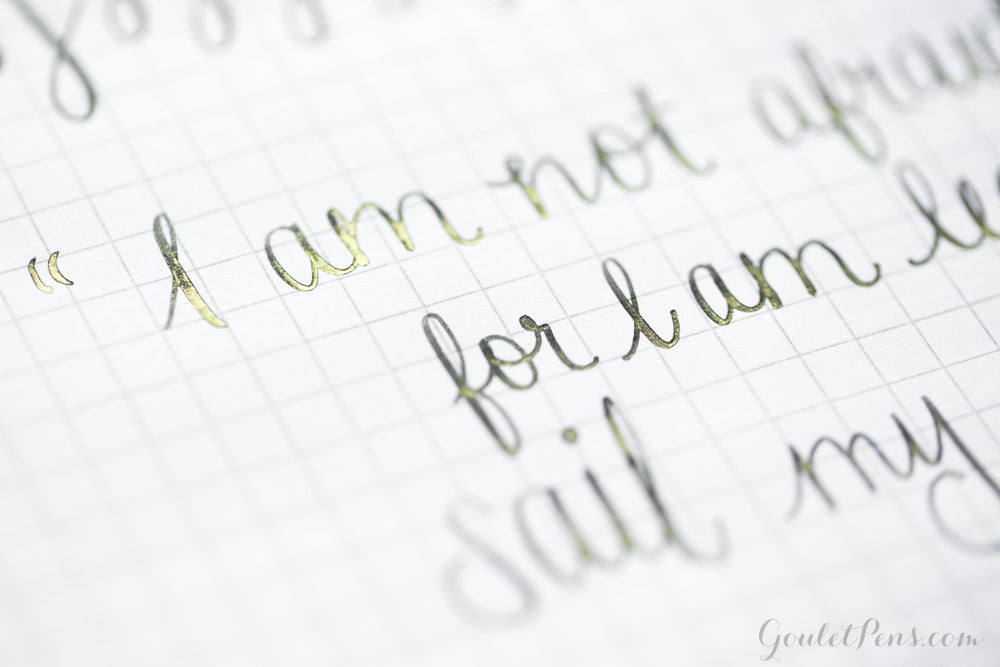 “I am not afraid
for I am le
sail my
GouletPens.com